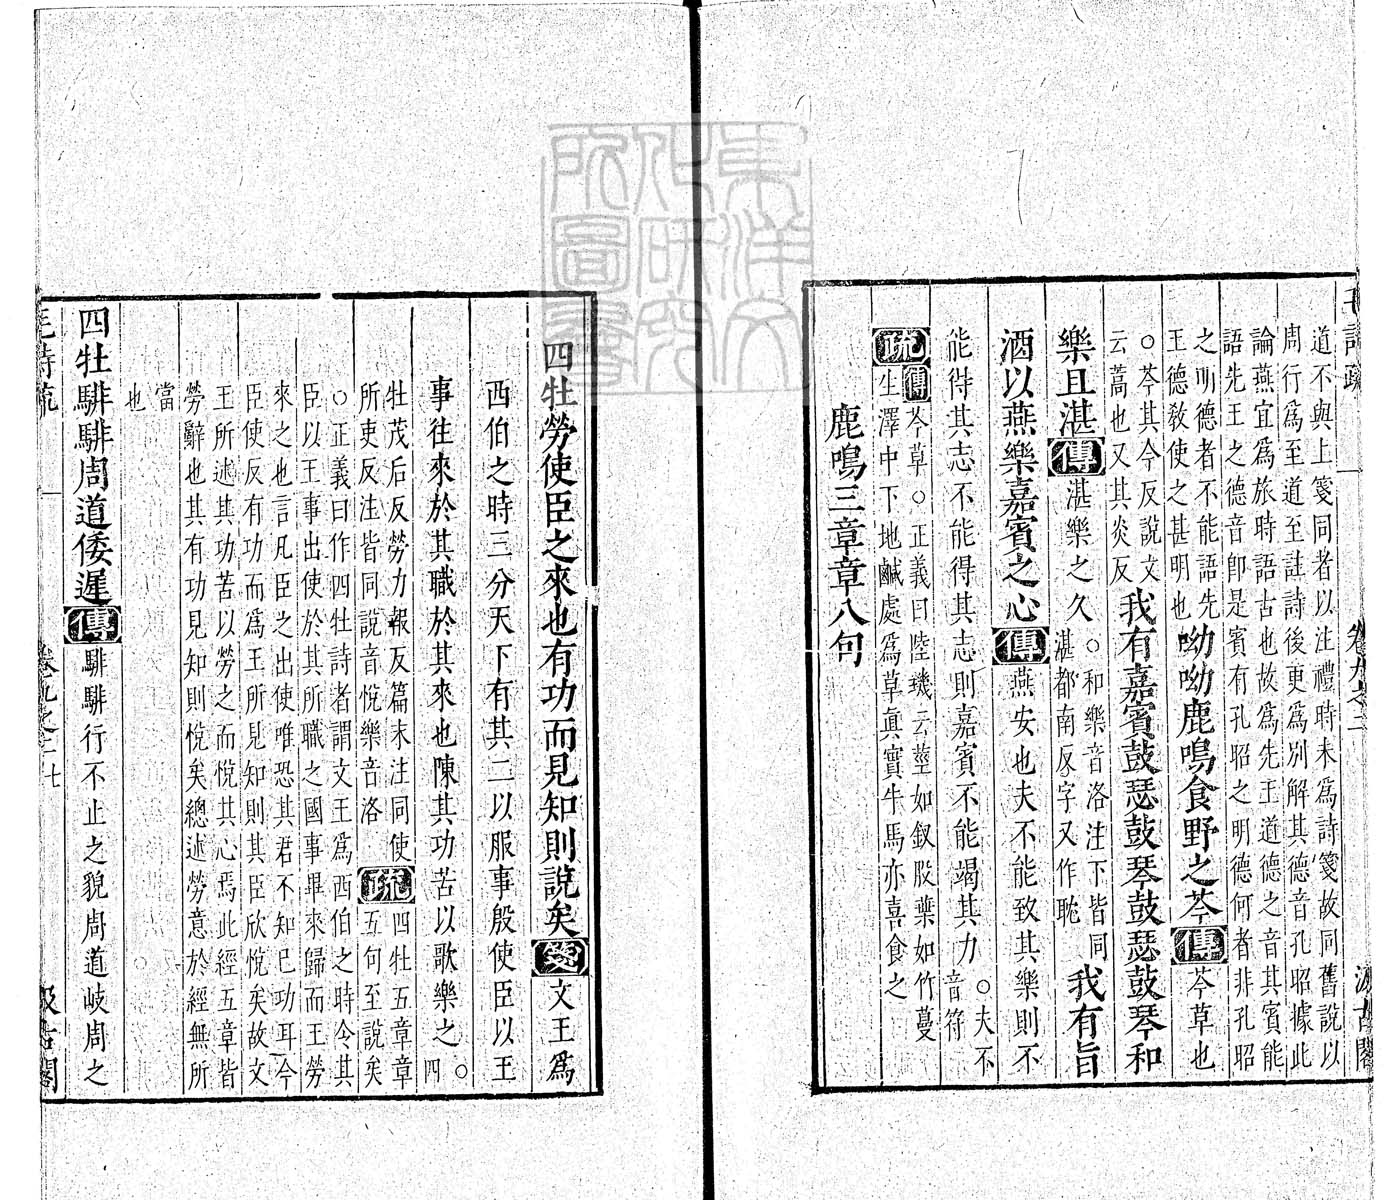 毛詩疏 卷九之二 汲古閣
道不與上箋同者以注禮時未爲詩箋故同舊說以
周行爲至道至註詩後更爲別解其德音孔昭據此
論燕宜爲旅時語古也故爲先王道德之音其賓能
語先王之德音卽是賓有孔昭之明德何者非孔昭
之明德者不能語先
王德敎使之甚明也
呦呦鹿鳴食野之芩傳芩草也
○芩其今反說文
云蒿也又其炎反
我有嘉賓鼓瑟鼓琴鼓瑟鼓琴和
樂且湛傳湛樂之久
○和樂音洛注下皆同
湛都南反字又作耽
我有旨
酒以燕樂嘉賓之心傳燕安也夫不能致其樂則不
能得其志不能得其志則嘉賓不能竭其力
○夫不
音符
疏
傳芩草○正義曰陸璣云莖如釵股葉如竹蔓
生澤中下地鹹處爲草眞實牛馬亦喜食之
鹿鳴三章章八句
四牡勞使臣之來也有功而見知則說矣箋文王爲
西伯之時三分天下有其二以服事殷使臣以王
事往來於其職於其來也陳其功苦以歌樂之
○
四
牡茂后反勞力報反篇末注同使
所吏反注皆同說音悅樂音洛
疏
四牡五章章
五句至說矣
○正義曰作四牡詩者謂文王爲西伯之時令其
臣以王事出使於其所職之國事畢來歸而王勞
來之也言凡臣之出使唯恐其君不知己功耳今
臣使反有功而爲王所見知則其臣欣悅矣故文
王所述其功苦以勞之而悅其心焉此經五章皆
勞辭也其有功見知則悅矣總述勞意於經無所
當
也
四牡騑騑周道倭遲傳騑騑行不止之貌周道岐周之
毛詩疏 卷九之二 七 汲古閣
東洋文化研究所圖書